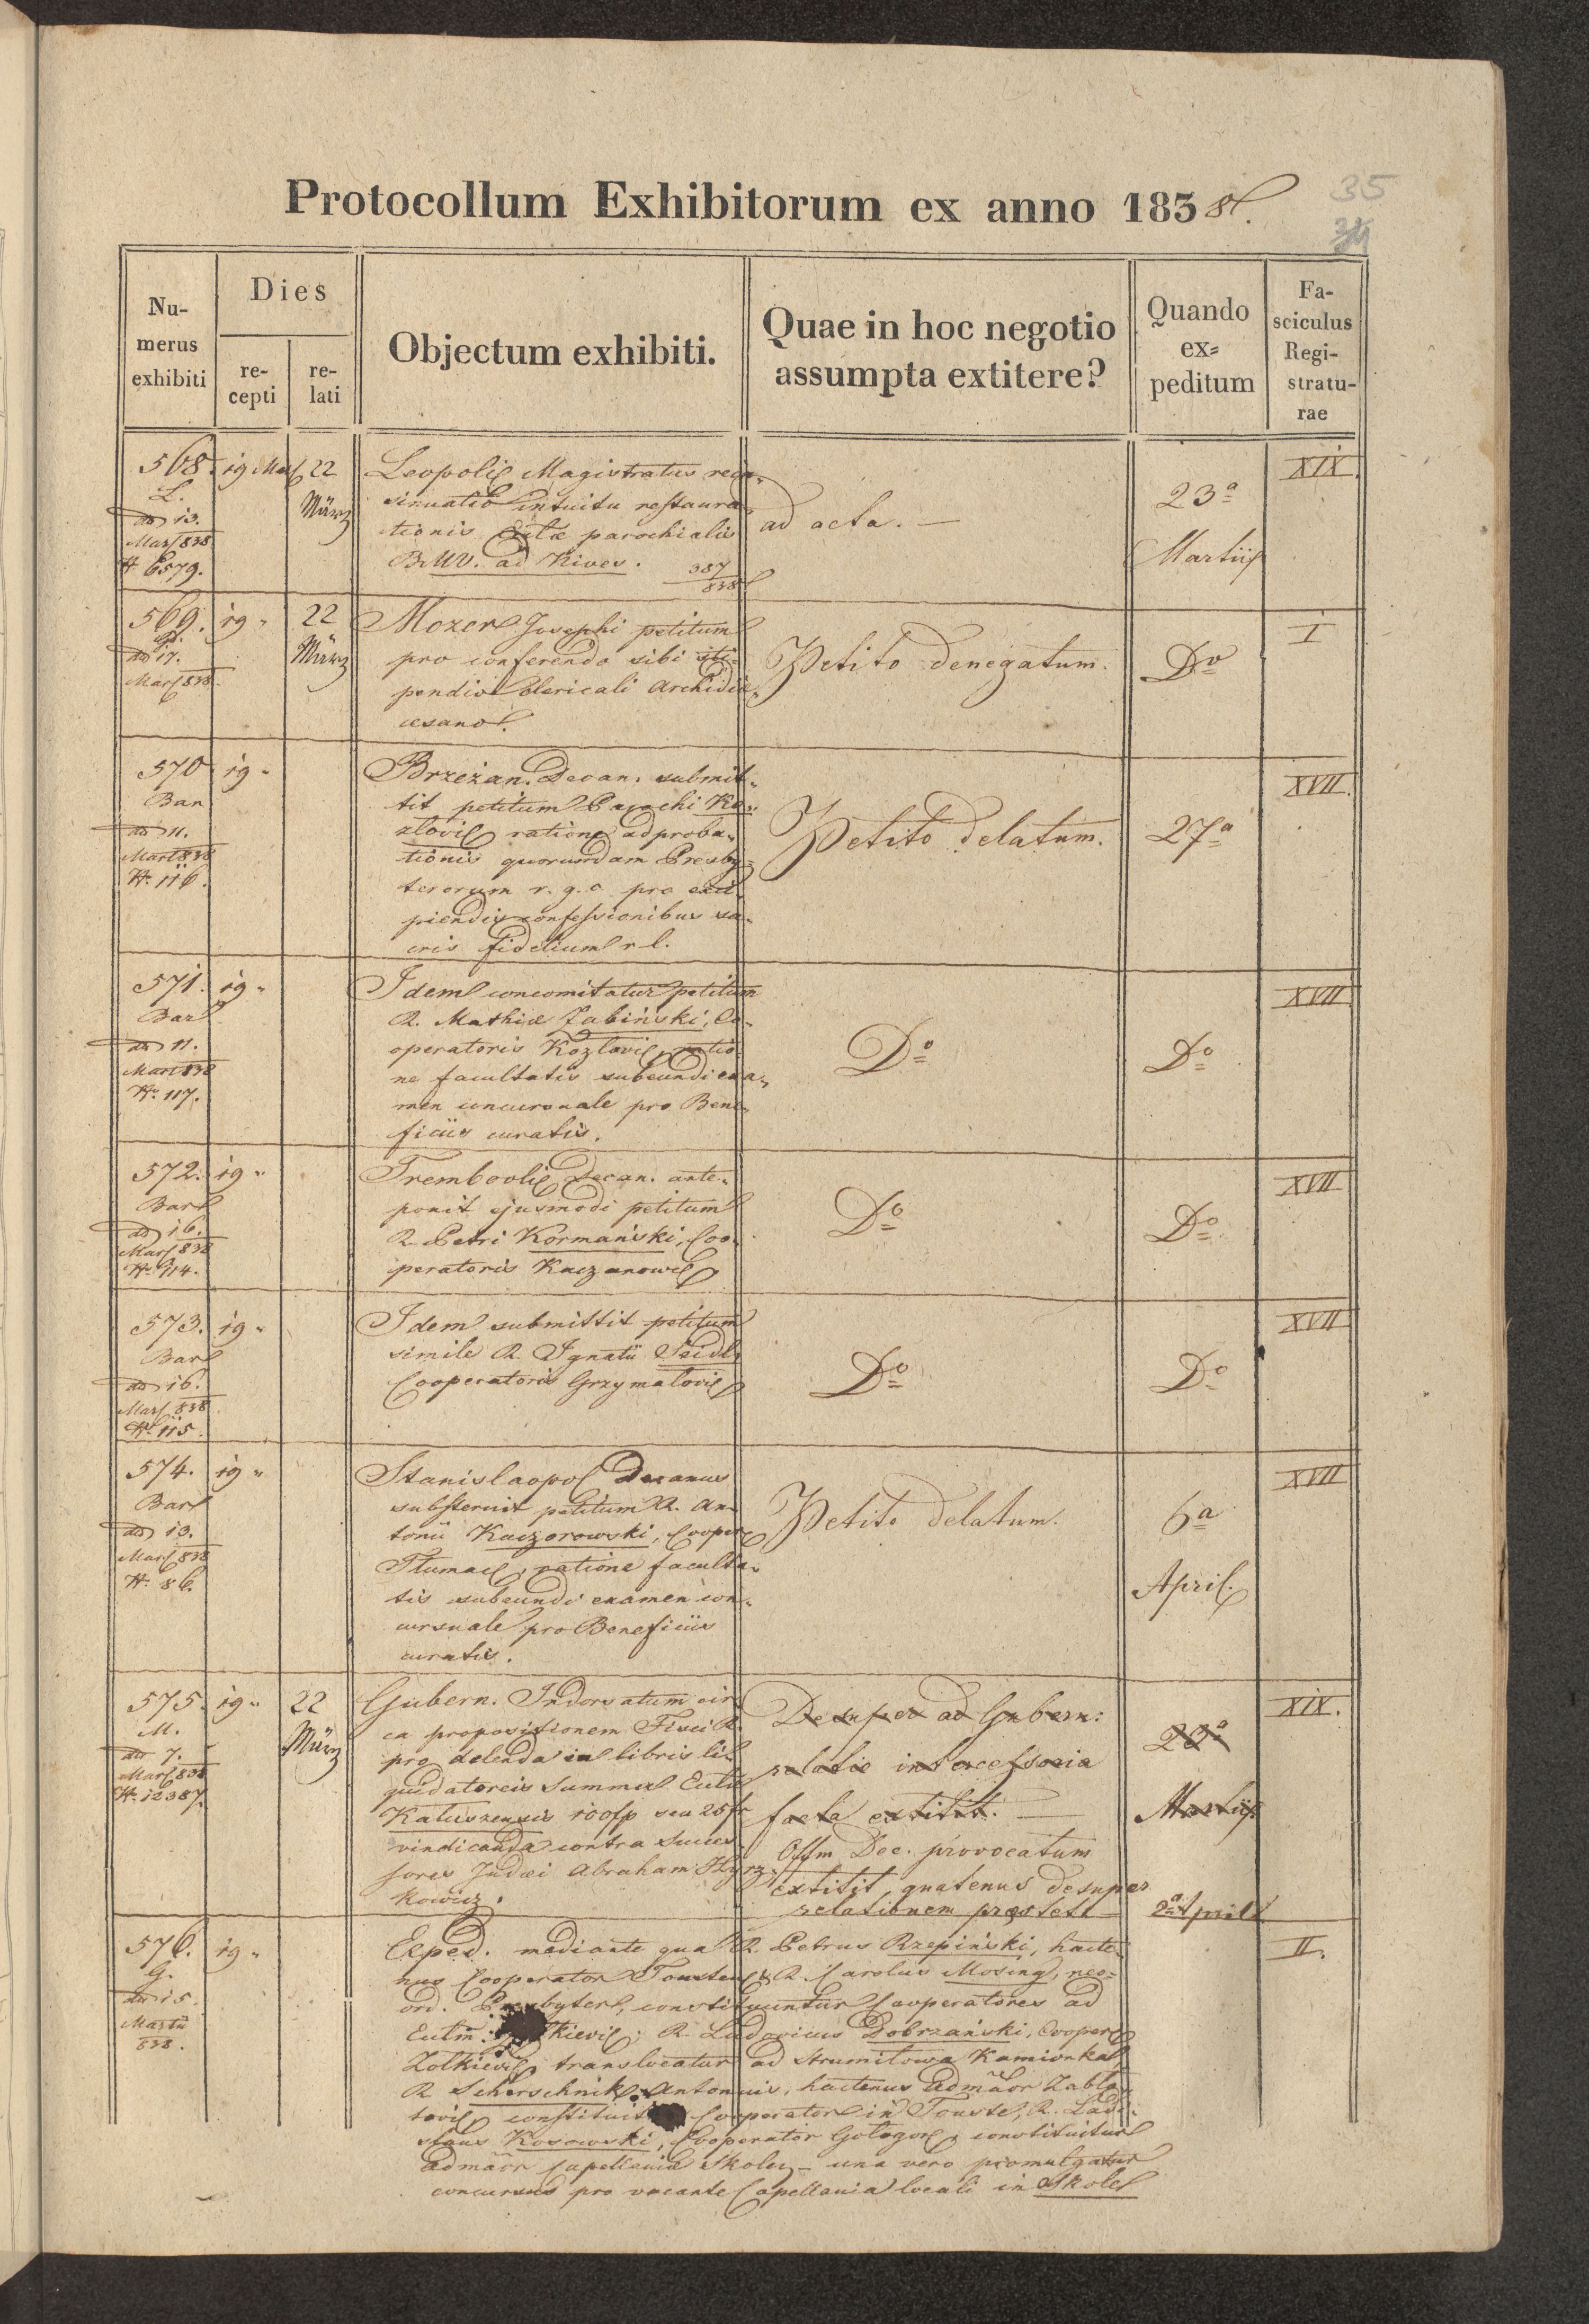 35
34
Protocollum Exhibitorum ex anno 1838.
Numerus exhibiti
Dies
recepti
relati
Objectum exhibiti.
Quae in hoc negotio assumpta extitere?
Quando expeditum
Fasciculus Registraturae
568. 19 Mart 22 März
L.
ad 13.
Mart 838
N. 6579.
Leopoli Magistratus rein-
sinuatio intuitu restaura-
tionis Ecclae parochialis
B. M. V. ad Nives. 387/838
ad acta. —
23a
Martii
XIX
569. 19 " 22 März
ad 17.
Mart 838.
Mozer Josephi petitum
pro conferendo sibi sti-
pendio clericali Archidiœ-
cesano.
Petito denegatum.
Do
I
570 19 "
Bar
ad 11.
Mart 838
N. 116.
Brzeżan. Decan. submit-
tit petitum Parochi Ko-
zlovi ratione adproba-
tionis quorumdam Presby-
terorum r. g. c. pro exci-
piendis confessionibus sa-
cris fidelium r. l.
Petito delatum.
27a
XVII.
571. 19 "
Bar
ad 11.
Mart 838
N. 117.
Idem concomitatur petitum
R. Mathiæ Żabiński, Co-
operatoris Kozlovi, ratio-
ne facultatis subeundi exa-
men concursuale pro Bene-
ficiis curatis.
Do
Do
XVII
572. 19 "
Bar
ad 16.
Mart 838
N. 114.
Trembovli Decan. ante-
ponit ejusmodi petitum
R. Petri Kormański, Coo-
peratoris Kaczanowi
Do
Do
XVII
573. 19 "
Bar
ad 16.
Mart 838
N. 115.
Idem submittit petitum
simile R. Ignatii Seidl
Cooperatoris Grzymałovi
Do
Do
XVII
574. 19 "
Bar
ad 13.
Mart 838
N. 86.
Stanislaopol Decanus
substernit petitum R. An-
tonii Kaczorowski, Cooper
Tłumac, ratione faculta-
tis subeundi examen con-
cursuale pro Beneficiis
curatis.
Petito delatum.
6a
April.
XVII
575. 19 " 22 März
M.
ad 7.
Mart 838
N. 12387.
Gubern. Indorsatum cir-
ca propositionem Fisci R.
pro delenda in libris li-
quidatoreis Summa Eccle
Katuszensis 100fp seu 25fr
vindicanda contra succes-
sores Judæi Abraham Hyrz-
kowicz.
Desuper ad Gubern:
relatio intercessoria
facta extitit. —
Offm Dec. provocatum
extitit, quatenus desuper
relationem præstet
23a
Martii
2a April
XIX.
576. 19 "
G.
ad 15.
Martii
838.
Exped. mediante qua R. Petrus Rzepiński, hacte-
nus Cooperator Touste & R. Carolus Mosing, neo-
ord. Presbyter, constituuntur Cooperatores ad
Ecclm: kievi; R. Ludovicus Dobrzański, Cooper
Zolkievi translocatur ad Strumiłowa Kamionka,
R. Scherschnik Antonius, hactenus Admãor Zablo-
tovi constituit Cooperator in Touste, R. Ladi-
slaus Kosowski, Cooperator Gologor, constituitur
Admãor Capellaniæ Skole, – una vero promulgatur
concursus pro vacante Capellania locali in Skole
II.